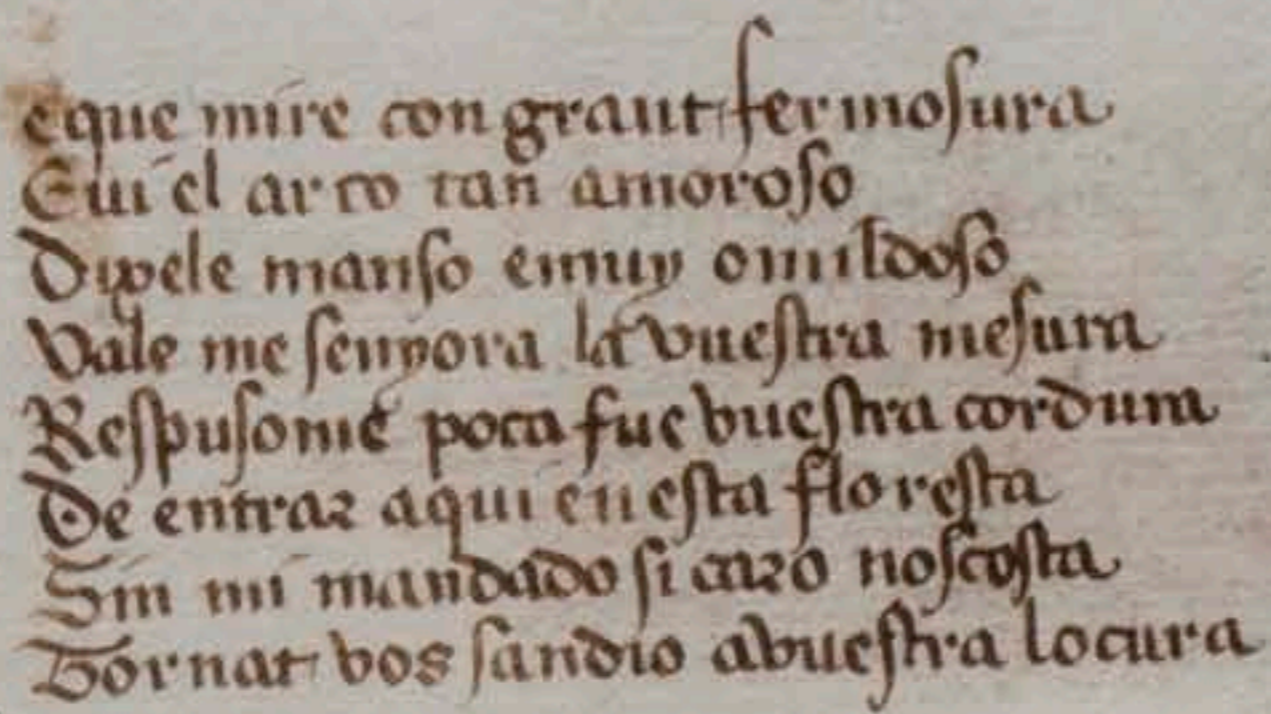 e que mire con grant fermosura
E ui el arco tan amoroso
Dixele manso e muy omildoso
Vale me senyora la vuestra mesura
Respusome poca fue vuestra cordura
De entrar aqui en esta floresta
Sin mi mandado si caro nos costa
Tornat vos sandio a vuestra locura